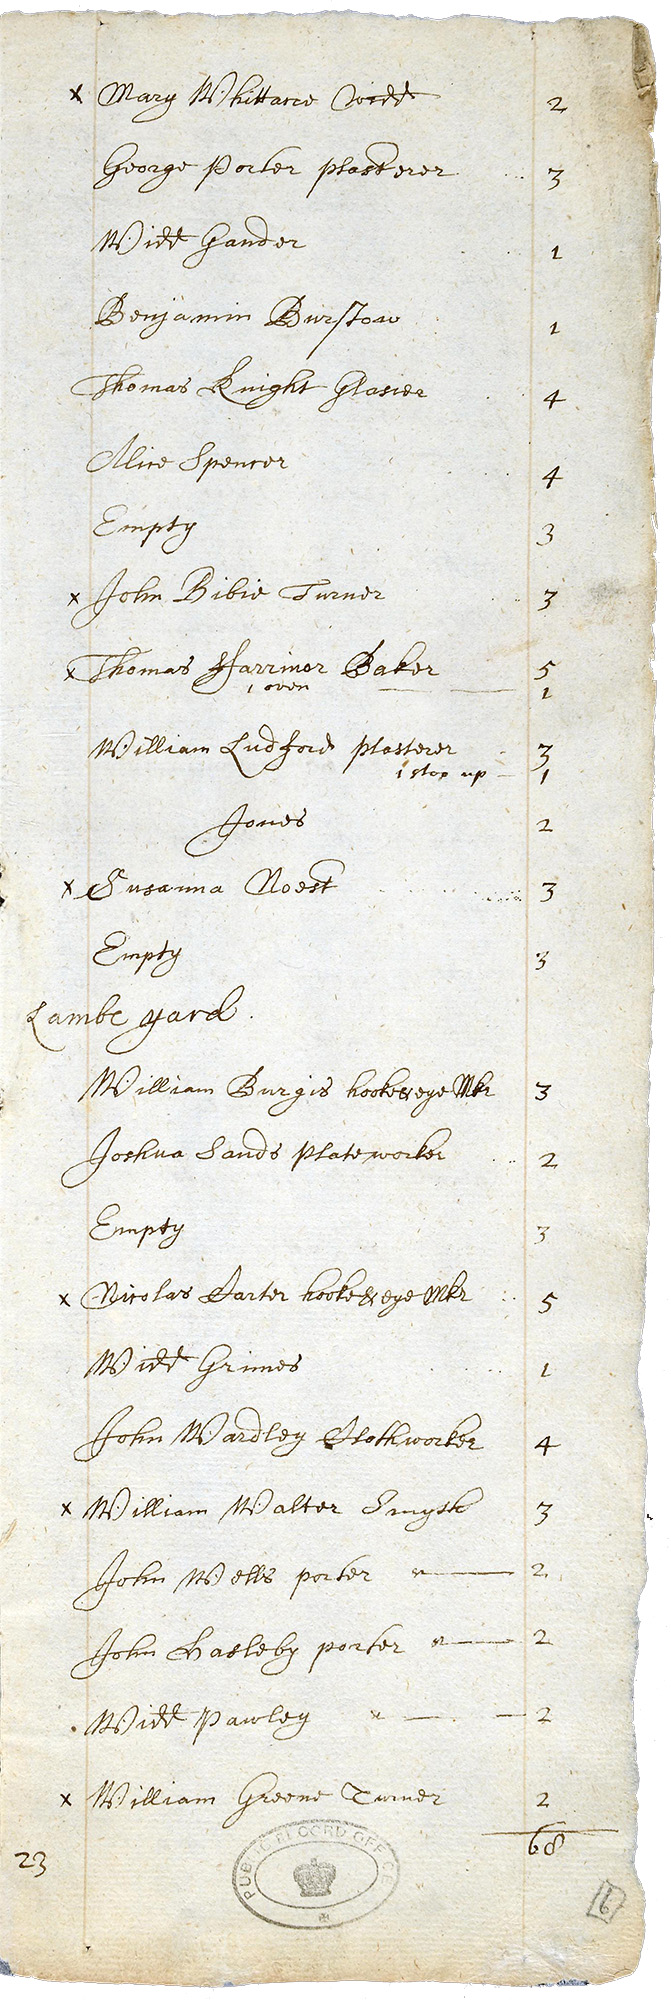 x Mary Whittacre Widd 2
George Porter plasterer 3
Widd Gander 1
Benjamin Burstow 1
Thomas Knight Glasier 4
Alice Spencer 4
Empty 3
x John Bibie Turner 3
x Thomas Farrinor Baker 5
1 oven 1
William Ludford plasterer 3
1 stop up 1
Jones 2
x Susanna Noest 3
Empty 3
Lambe yard
William Burgis hooke & eye Mkr 3
Joshua Sands Plateworker 2
Empty 3
x Nicolas Carter hooke & eye Mkr 5
Widd Grimes 1
John Wardley Clothworker 4
x William Walter Smyth 3
John Wells porter 2
John Hasleby porter 2
Widd Pawley 2
x William Greene Turner 2
68
23
PUBLIC RECORD OFFICE
6